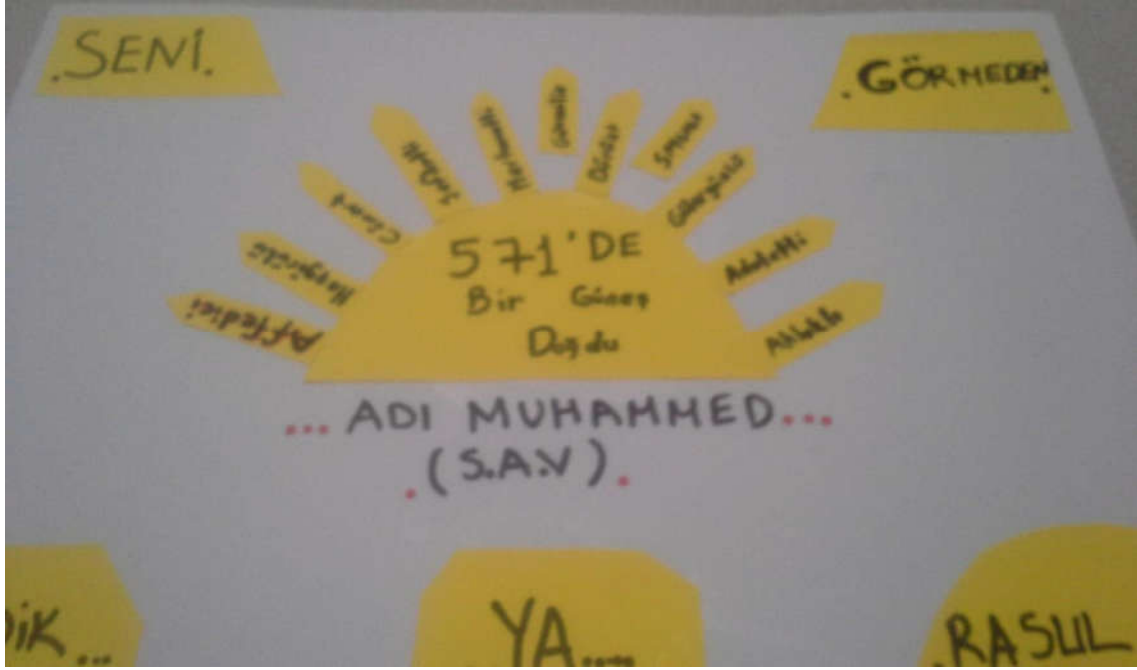 .SENİ.
.GÖRMEDEN.
Affedici
Hoşgörülü
Cömert
Şefkatli
Merhametli
Güvenilir
Güleryüzlü
Adaletli
Ahlaklı
571'DE
Bir Güneş
Doğdu
...ADI MUHAMMED...
.(S.A.V).
İK...
YA....
.RASUL